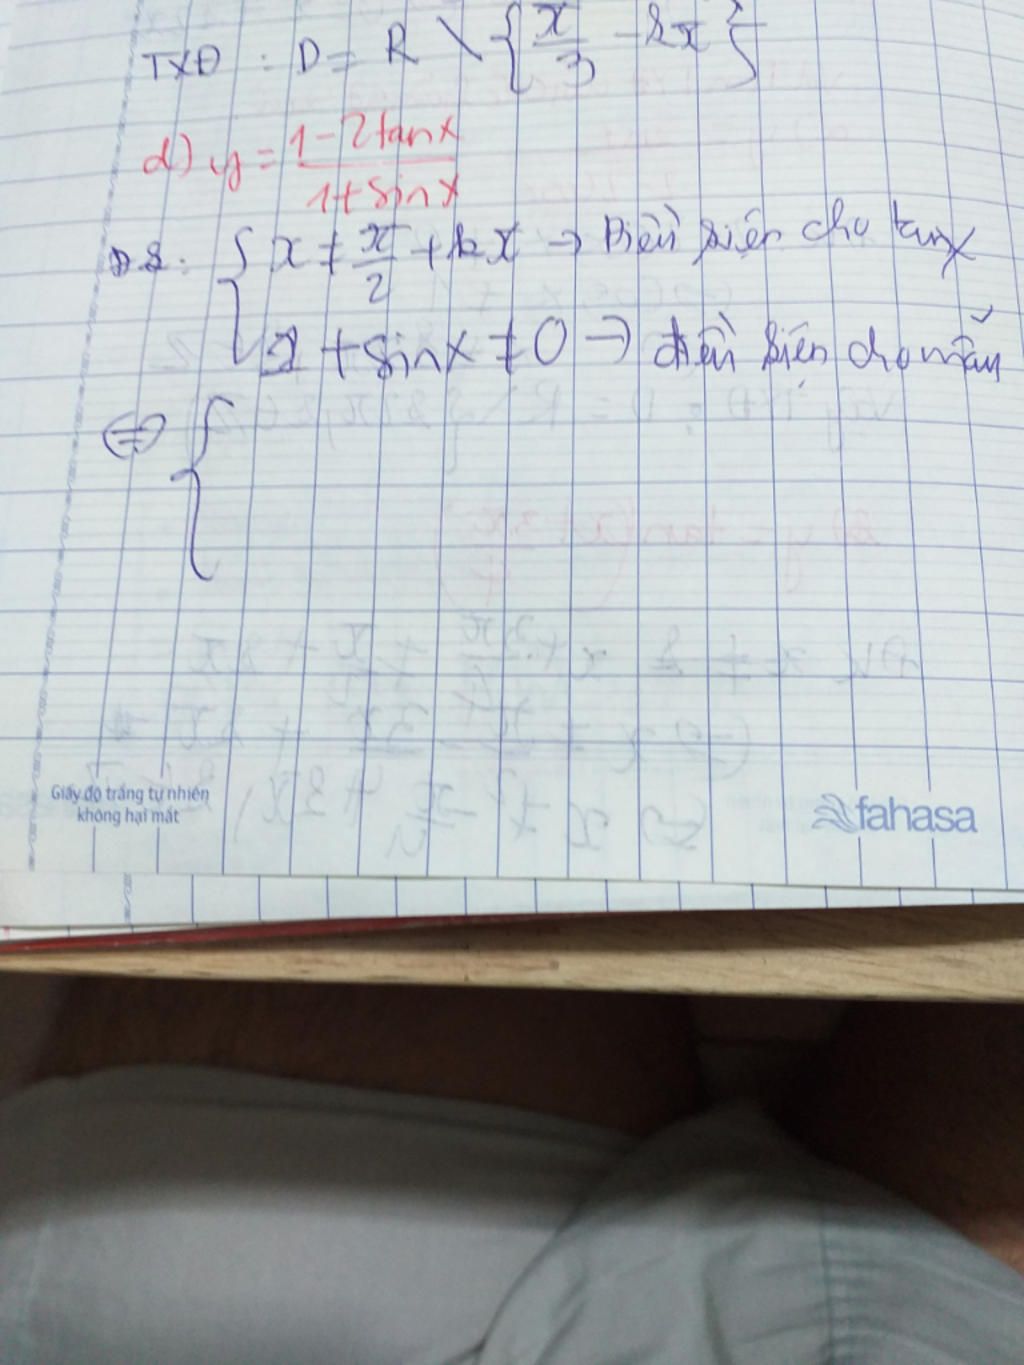 TXĐ : D = R \ {π/3 - kπ}
d) y = (1 - 2tanx)/(1 + sinx)
{ x ≠ π/2 + kπ → Điều kiện cho tanx
1 + sinx ≠ 0 → điều kiện cho mẫu
⇔ {
Giấy độ trắng tự nhiên
không hại mắt
fahasa